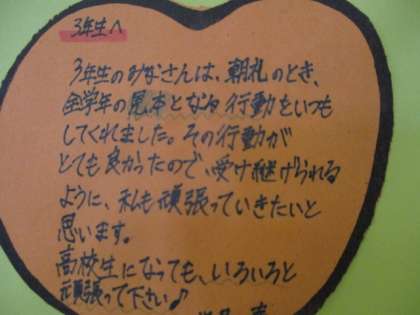 3年生へ
3年生のみなさんは、朝礼のとき、
全学年の見本となる行動をいつも
してくれました。その行動が
とても良かったので、受け継げられる
ように、私も頑張っていきたいと
思います。
高校生になっても、いろいろと
頑張って下さい♪